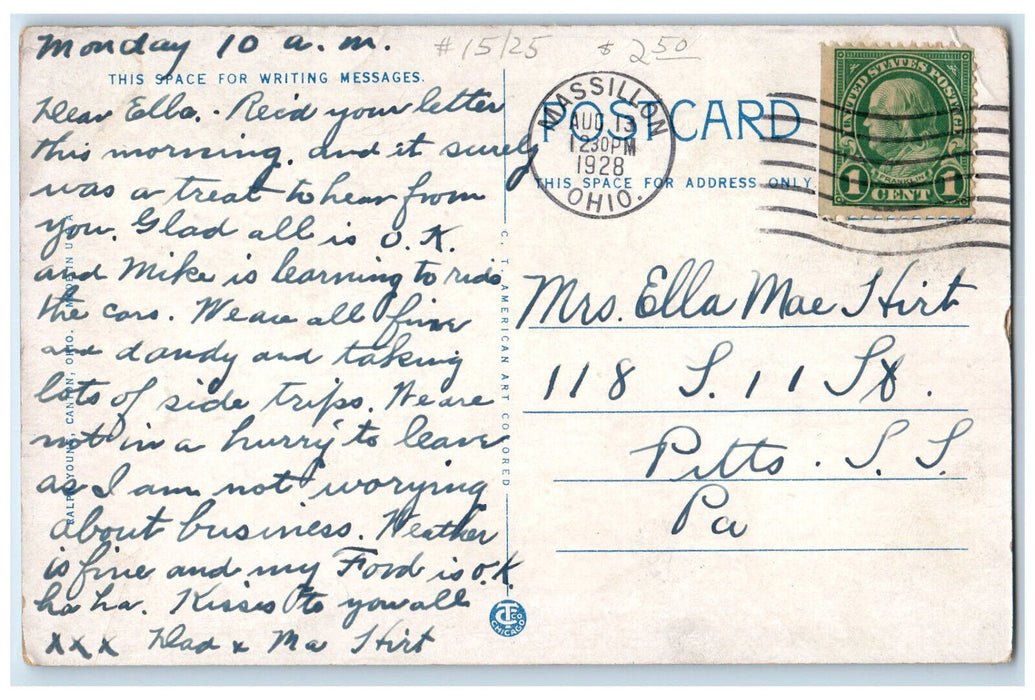 Monday 10 a.m.
#15/25 $2.50
THIS SPACE FOR WRITING MESSAGES.
Dear Ella. - Rec'd your letter
this morning, and it surely
was a treat to hear from
you. Glad all is O.K.
and Mike is learning to ride
the cars. We are all fine
and dandy and taking
lots of side trips. We are
not in a hurry to leave
as I am not worying
about business. Weather
is fine and my Ford is O.K.
ha ha. Kisses to you all
x x x Dad & Ma Hirt
RALPH YOUNG, CANTON, OHIO.
C. T. AMERICAN ART COLORED
CT CO
CHICAGO
POST CARD
THIS SPACE FOR ADDRESS ONLY
MASSILLON
AUG 13
1230PM
1928
OHIO.
UNITED STATES POSTAGE
FRANKLIN
1 CENT 1
Mrs. Ella Mae Hirt
118 S. 11 St.
Pitts. S. S.
Pa